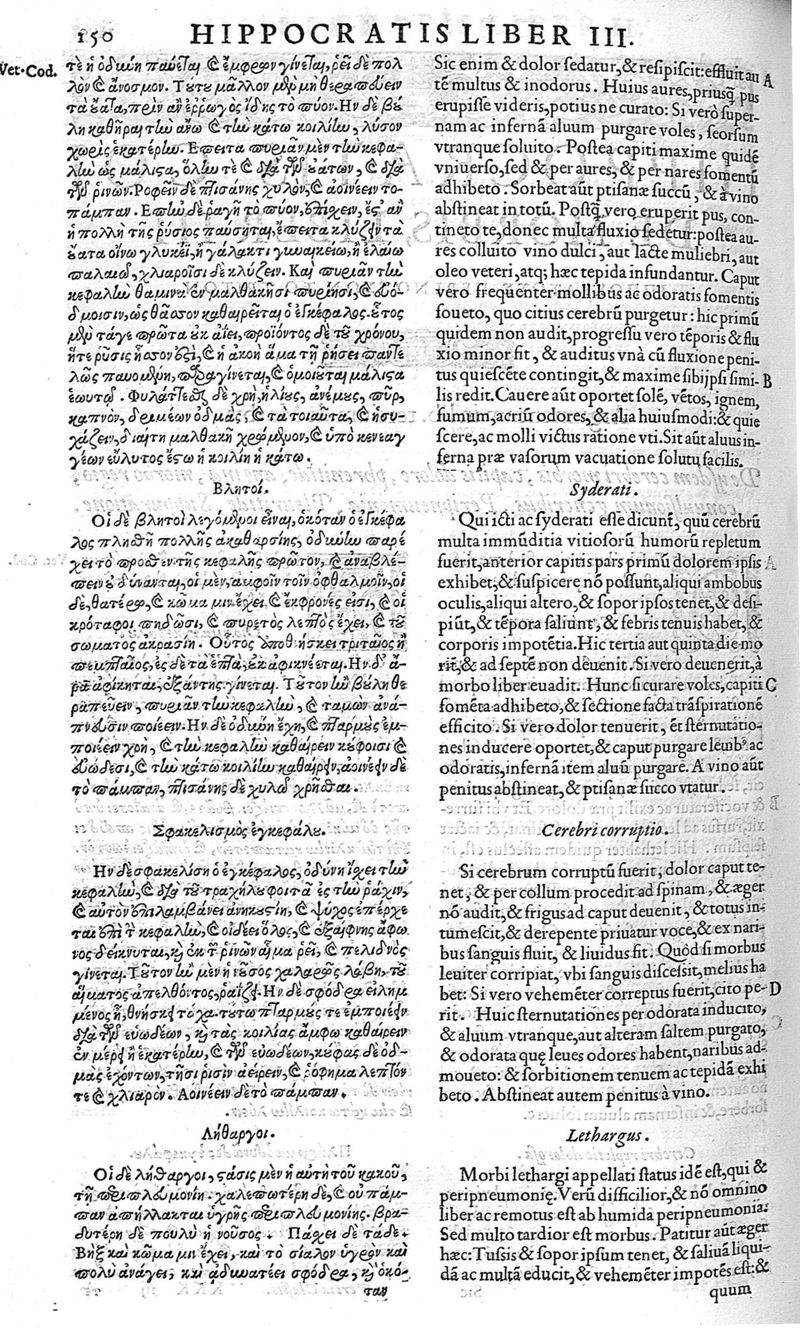 150 HIPPOCRATIS LIBER III.
Vet. Cod.
τε ἡ ὀδύνη παύεται, καὶ ἔμφρων γίνεται, ῥεῖ δὲ πολ
λὸν καὶ ἄνοσμον. Τούτου μᾶλλον μὲν μὴ θεραπεύειν
τὰ ὤατα, πρὶν ἂν ἐῤῥωγὸς ἴδης τὸ πύον. Ην δὲ βού
λη καθῆραι τὴν ἄνω καὶ τὴν κάτω κοιλίην, λύσον
χωρὶς ἑκατέρην. Επειτα πυριᾶν μὲν τὴν κεφα-
λὴν ὡς μάλιστα, ὅλην τε καὶ διὰ τῶν ὠάτων, καὶ διὰ
τῶν ῥινῶν. Ροφεῖν δὲ πτισάνης χυλὸν, καὶ ἀοινέειν το-
πάμπαν. Επὴν δὲ ῥαγῆ τὸ πύον, ἐπίσχειν, ἐς ἂν
ἡ πολλὴ τῆς ῥύσιος παύσηται, ἔπειτα κλύζειν τὰ
ὤατα οἴνῳ γλυκεῖ, ἢ γάλακτι γυναικείῳ, ἢ ἐλαίῳ
παλαιῷ, χλιαροῖσι δὲ κλύζειν. Καὶ πυριᾶν τὴν
κεφαλὴν θαμινὰ ἐν μαλθακῆσι πυρίησι, καὶ εὐό-
δμοισιν, ὡς θᾶσσον καθαίρεται ὁ ἐγκέφαλος. οὗτος
μὲν τάγε πρῶτα οὐκ ἀΐει, προϊόντος δὲ τοῦ χρόνου,
ἥτε ῥῦσις ἧσσον ἐστι, καὶ ἡ ἀκοὴ ἅμα τῆ ῥήσει παντε
λῶς παυομένη, παραγίνεται, καὶ ὁμοιοῦται μάλιστα
ἑωυτῷ. Φυλάττεσθαι δὲ χρὴ, ἡλίους, ἀνέμους, πῦρ,
καπνὸν, δριμέων ὀδμὰς, καὶ τὰ τοιαῦτα, καὶ ἡσυ-
χάζειν, διαίτη μαλθακῆ χρεώμενον, καὶ ὑπὸ κενεαγ
γέων εὔλυτος ἔστω ἡ κοιλίη ἡ κάτω.
Βλητοί.
Οἱ δὲ βλητοὶ λεγόμενοι εἶναι, ὁκόταν ὁ ἐγκέφα
λος πλησθῆ πολλῆς ἀκαθαρσίης, ὀδύνην παρέ
χει τὸ πρόσθεν τῆς κεφαλῆς πρῶτον, καὶ ἀναβλέ-
πειν οὐ δύνανται, οἱ μὲν, ἀμφοῖν τοῖν ὀφθαλμοῖν, οἱ
δὲ, θατέρῳ, καὶ κῶμα μιν ἔχει, καὶ ἔκφρονές εἰσι, καὶ οἱ
κρόταφοι πηδῶσι, καὶ πυρετὸς λεπτὸς ἔχει, καὶ τοῦ
σώματος ἀκρασίη. Οὗτος ἀποθνήσκει τριταῖος ἢ
πεμπταῖος, ἐς δὲ τὰ ἑπτὰ, οὐκ ἀφικνέεται. Ην δ' ἄ-
ρα ἀφίκηται, ἐξάντης γίνεται. Τοῦτον ἢν βούλη θε
ραπεύειν, πυριᾶν τὴν κεφαλὴν, καὶ ταμὼν ἀνά-
πνευσιν ποιέειν. Ην δὲ ὀδύνη ἔχη, καὶ πταρμοὺς ἐμ-
ποιέειν χρὴ, καὶ τὴν κεφαλὴν καθαίρειν κούφοισι καὶ
εὐώδεσι, καὶ τὴν κάτω κοιλίην καθαίρειν, ἀοινέειν δὲ
τὸ πάμπαν, πτισάνης δὲ χυλῷ χρῆσθαι.
Σφακελισμὸς ἐγκεφάλου.
Ην δὲ σφακελίση ὁ ἐγκέφαλος, ὀδύνη ἴσχει τὴν
κεφαλὴν, καὶ διὰ τοῦ τραχήλου φοιτᾶ ἐς τὴν ῥάχιν,
καὶ αὐτὸν ἐπιλαμβάνει ἀνηκουστίη, καὶ ψῦχος ἐπέρχε
ται ἐπὶ τὴν κεφαλὴν, καὶ οἰδέει ὅλος, καὶ ἐξαίφνης ἄφω
νος δείκνυται, καὶ ἐκ τῶν ῥινῶν αἷμα ῥεῖ, καὶ πελιδνὸς
γίνεται. Τοῦτον ἢν μὲν ἡ νοῦσος χαλαρῶς λάβη, τοῦ
αἵματος ἀπελθόντος, ῥαΐζει. Ην δὲ σφόδρα εἰλημ
μένος ἦ, θνήσκει τάχα. τούτῳ πταρμούς τε ἐμποιέειν
διὰ τῶν εὐωδέων, καὶ τὰς κοιλίας ἄμφω καθαίρειν
ἐν μέρει ἢ ἑκατέρην, καὶ τῶν εὐωδέων, κούφας δὲ ὀδ-
μὰς ἐχόντων, τῆσι ῥισὶν ἀείρειν, καὶ ῥόφημα λεπτόν
τε καὶ χλιαρόν. Αοινέειν δὲ τὸ πάμπαν.
Λήθαργοι.
Οἱ δὲ λήθαργοι, στάσις μὲν ἡ αὐτὴ τοῦ κακοῦ,
τῆ περιπλευμονίη. χαλεπωτέρη δὲ, καὶ οὐ πάμ-
παν ἀπήλλακται ὑγρῆς περιπλευμονίης. βρα-
δυτέρη δὲ πουλὺ ἡ νοῦσος. Πάσχει δὲ τάδε.
Βὴξ καὶ κῶμα μιν ἔχει, καὶ τὸ σίαλον ὑγρὸν καὶ
πολὺ ἀνάγει, καὶ ἀδυνατέει σφόδρα, καὶ ὁκό-
ταν
Sic enim & dolor sedatur, & resipiscit: effluit aū
tē multus & inodorus. Huius aures, priusq̃ pus
erupisse videris, potius ne curato: Si verò super-
nam ac infernā aluum purgare voles, seorsum
vtranque soluito. Postea capiti maxime quidē
vniuerso, sed & per aures, & per nares fomentū
adhibeto. Sorbeat aūt ptisanæ succū, & à vino
abstineat in totū. Postq̃ vero eruperit pus, con-
tineto te, donec multa fluxio sedetur: postea au-
res colluito vino dulci, aut lacte muliebri, aut
oleo veteri, atq; hæc tepida infundantur. Caput
vero frequenter mollibus ac odoratis fomentis
foueto, quo citius cerebrū purgetur: hic primū
quidem non audit, progressu vero tēporis & flu
xio minor fit, & auditus vnà cū fluxione peni-
tus quiescēte contingit, & maxime sibijpsi simi-
lis redit. Cauere aūt oportet solē, vētos, ignem,
fumum, acriū odores, & alia huiusmodi: & quie
scere, ac molli victus ratione vti. Sit aūt aluus in-
ferna præ vasorum vacuatione solutu facilis.
Syderati.
Qui icti ac syderati esse dicunt, quū cerebrū
multa immūditia vitiosorū humorū repletum
fuerit, anterior capitis pars primū dolorem ipsis
exhibet, & suspicere nō possunt, aliqui ambobus
oculis, aliqui altero, & sopor ipsos tenet, & desi-
piūt, & tēpora saliunt, & febris tenuis habet, &
corporis impotētia. Hic tertia aut quinta die mo
rit, & ad septē non deuenit. Si vero deuenerit, à
morbo liber euadit. Hunc si curare voles, capiti
fomēta adhibeto, & sectione facta trāspirationē
efficito. Si vero dolor tenuerit, et sternutatio-
nes inducere oportet, & caput purgare leuib⁹ ac
odoratis, infernā item aluū purgare. A vino aūt
penitus abstineat, & ptisanæ succo vtatur.
Cerebri corruptio.
Si cerebrum corruptū fuerit, dolor caput te-
net, & per collum procedit ad spinam, & æger
nō audit, & frigus ad caput deuenit, & totus in-
tumescit, & derepente priuatur voce, & ex nari-
bus sanguis fluit, & liuidus fit. Quòd si morbus
leuiter corripiat, vbi sanguis discessit, melius ha
bet: Si vero vehemēter correptus fuerit, cito pe-
rit. Huic sternutationes per odorata inducito,
& aluum vtranque, aut alteram saltem purgato,
& odorata quę leues odores habent, naribus ad-
moueto: & sorbitionem tenuem ac tepidā exhi
beto. Abstineat autem penitus à vino.
Lethargus.
Morbi lethargi appellati status idē est, qui &
peripneumonię. Verū difficilior, & nō omnino
liber ac remotus est ab humida peripneumonia.
Sed multo tardior est morbus. Patitur aūt æger
hæc: Tussis & sopor ipsum tenet, & saliuā liqui-
dā ac multā educit, & vehemēter impotēs est: &
quum
A
B
C
D